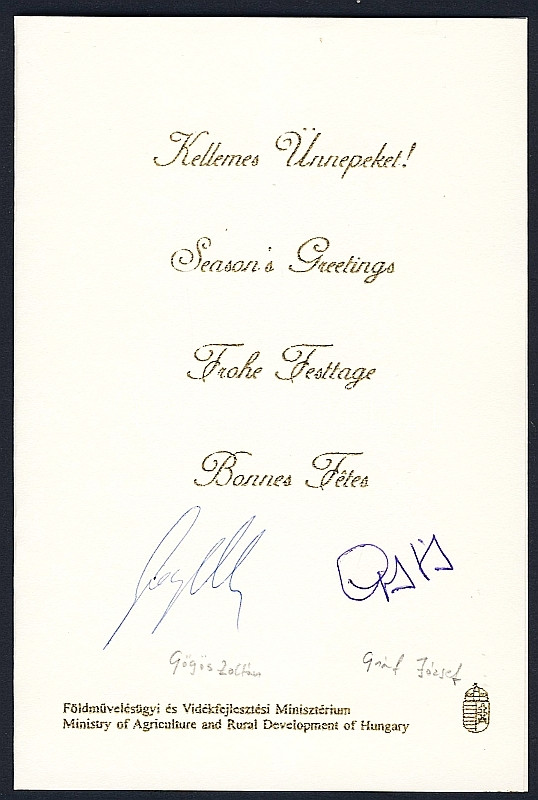 Kellemes Ünnepeket!
Season's Greetings
Frohe Festtage
Bonnes Fêtes
Gőgös Zoltán
Gráf József
Földművelésügyi és Vidékfejlesztési Minisztérium
Ministry of Agriculture and Rural Development of Hungary